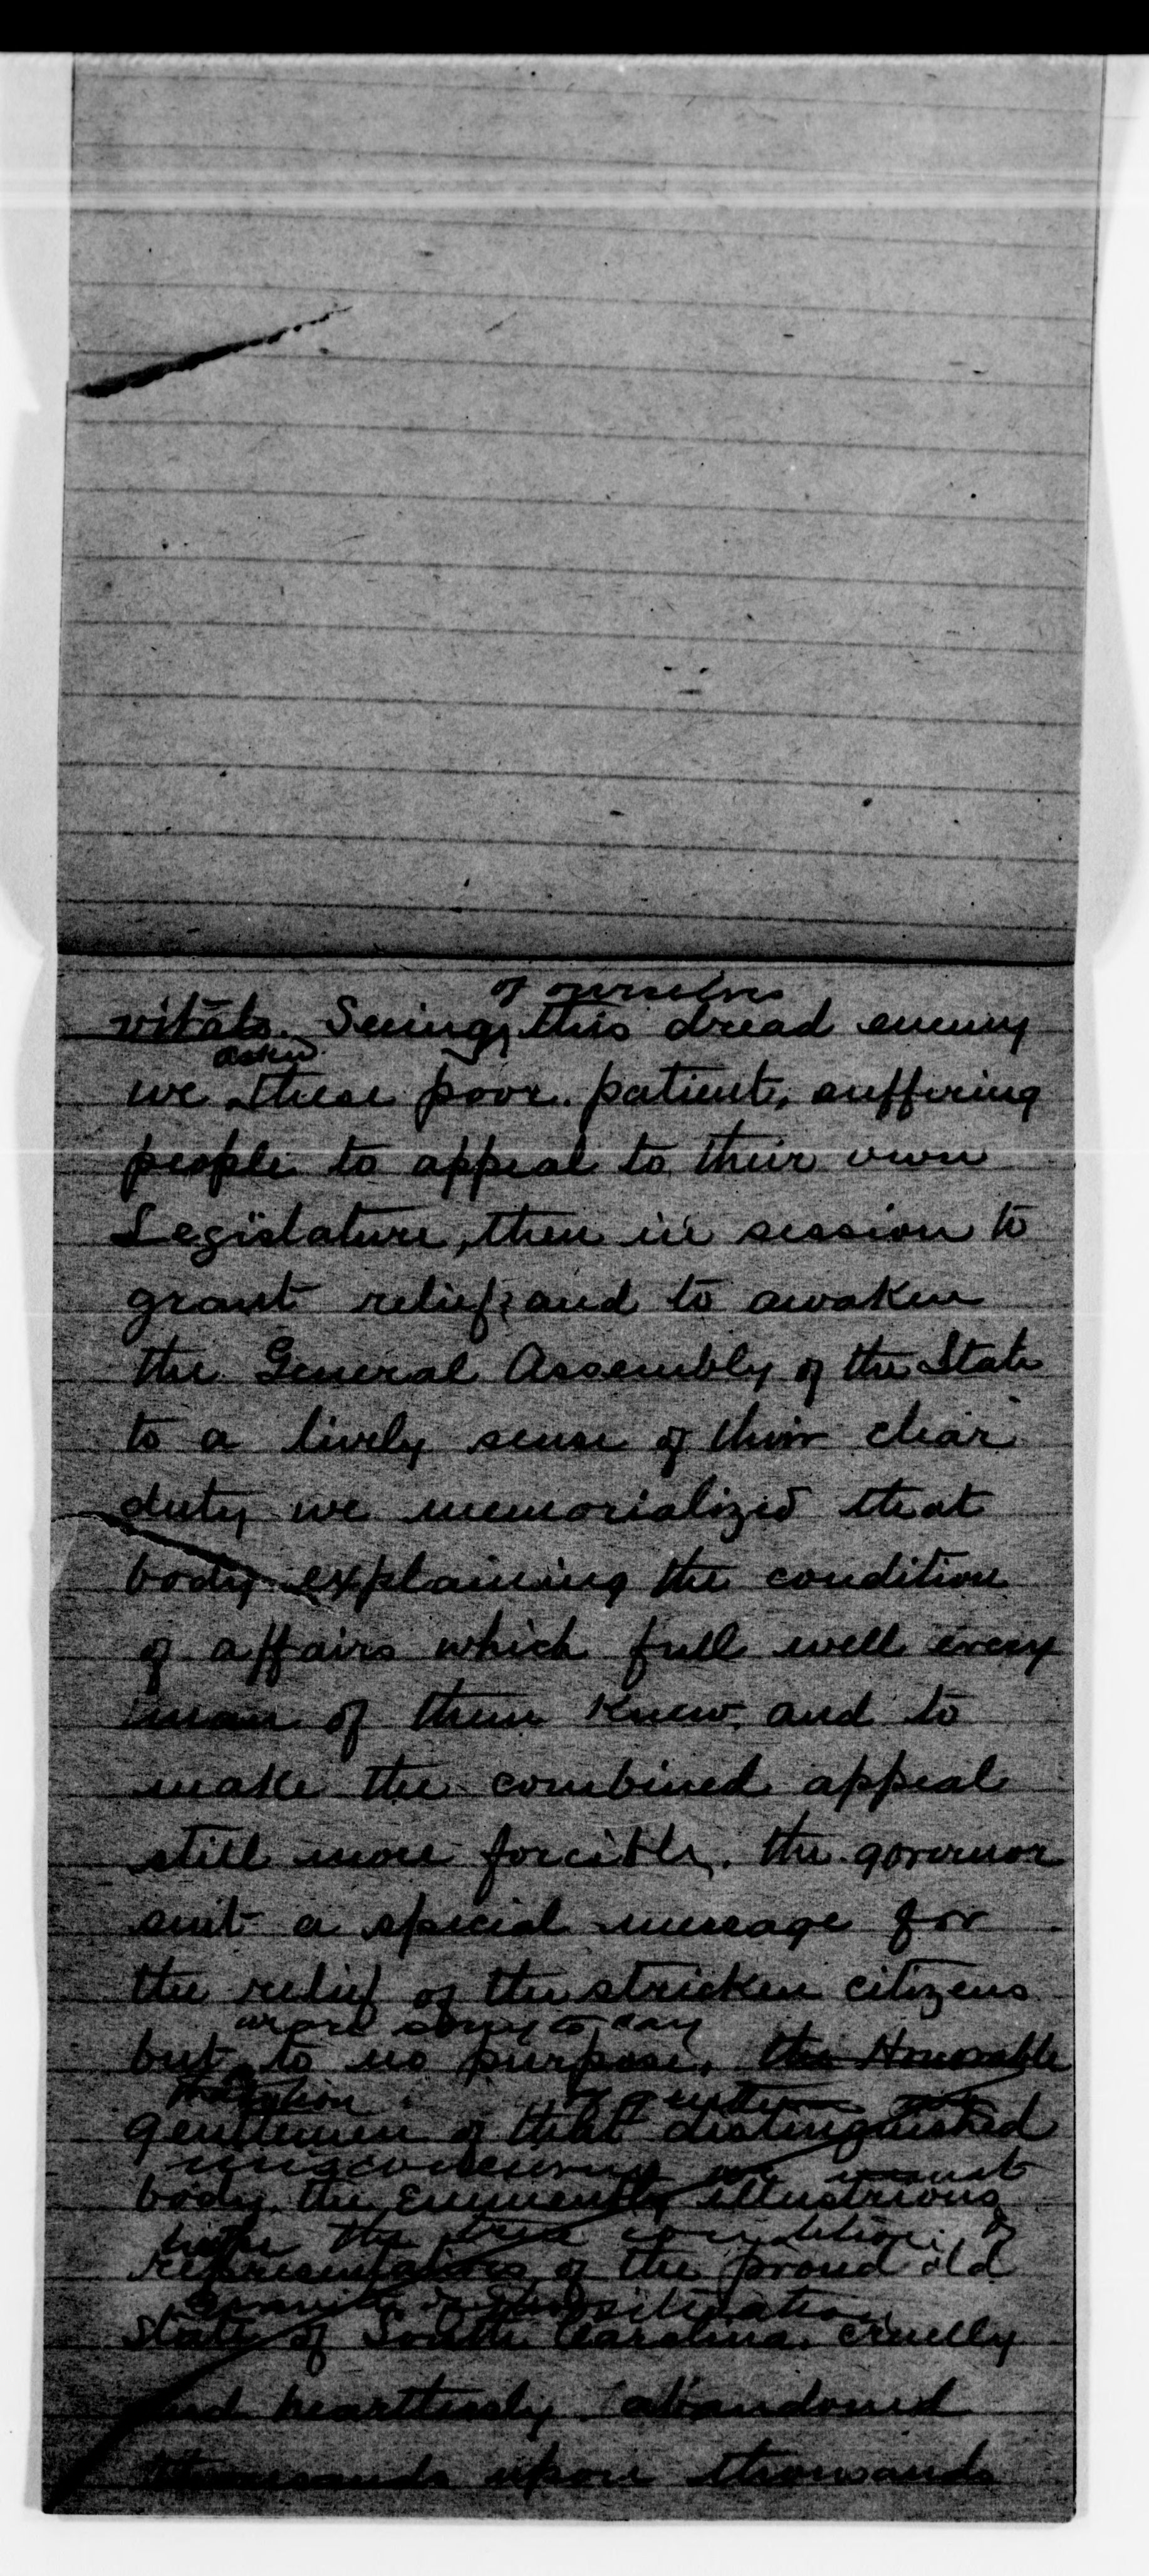 of ourselves
vitals. Seeing this dread enemy
asked
we these poor, patient, suffering
people to appeal to their own
Legislature, then in session to
grant relief; and to awaken
the General Assembly of the State
to a lively sense of their clear
duty we memorialized that
body explaining the condition
of affairs which full well every
man of them knew, and to
make the combined appeal
still more forcible, the governor
sent a special message for
the relief of the stricken citizens
we are sorry to say
but to no purpose, the Honorable
gentlemen of that distinguished
we must
body, the Eminently illustrious
the true condition of
representatives of the proud old
situation
State of South Carolina, cruelly
and heartlessly abandoned
thousands upon thousands